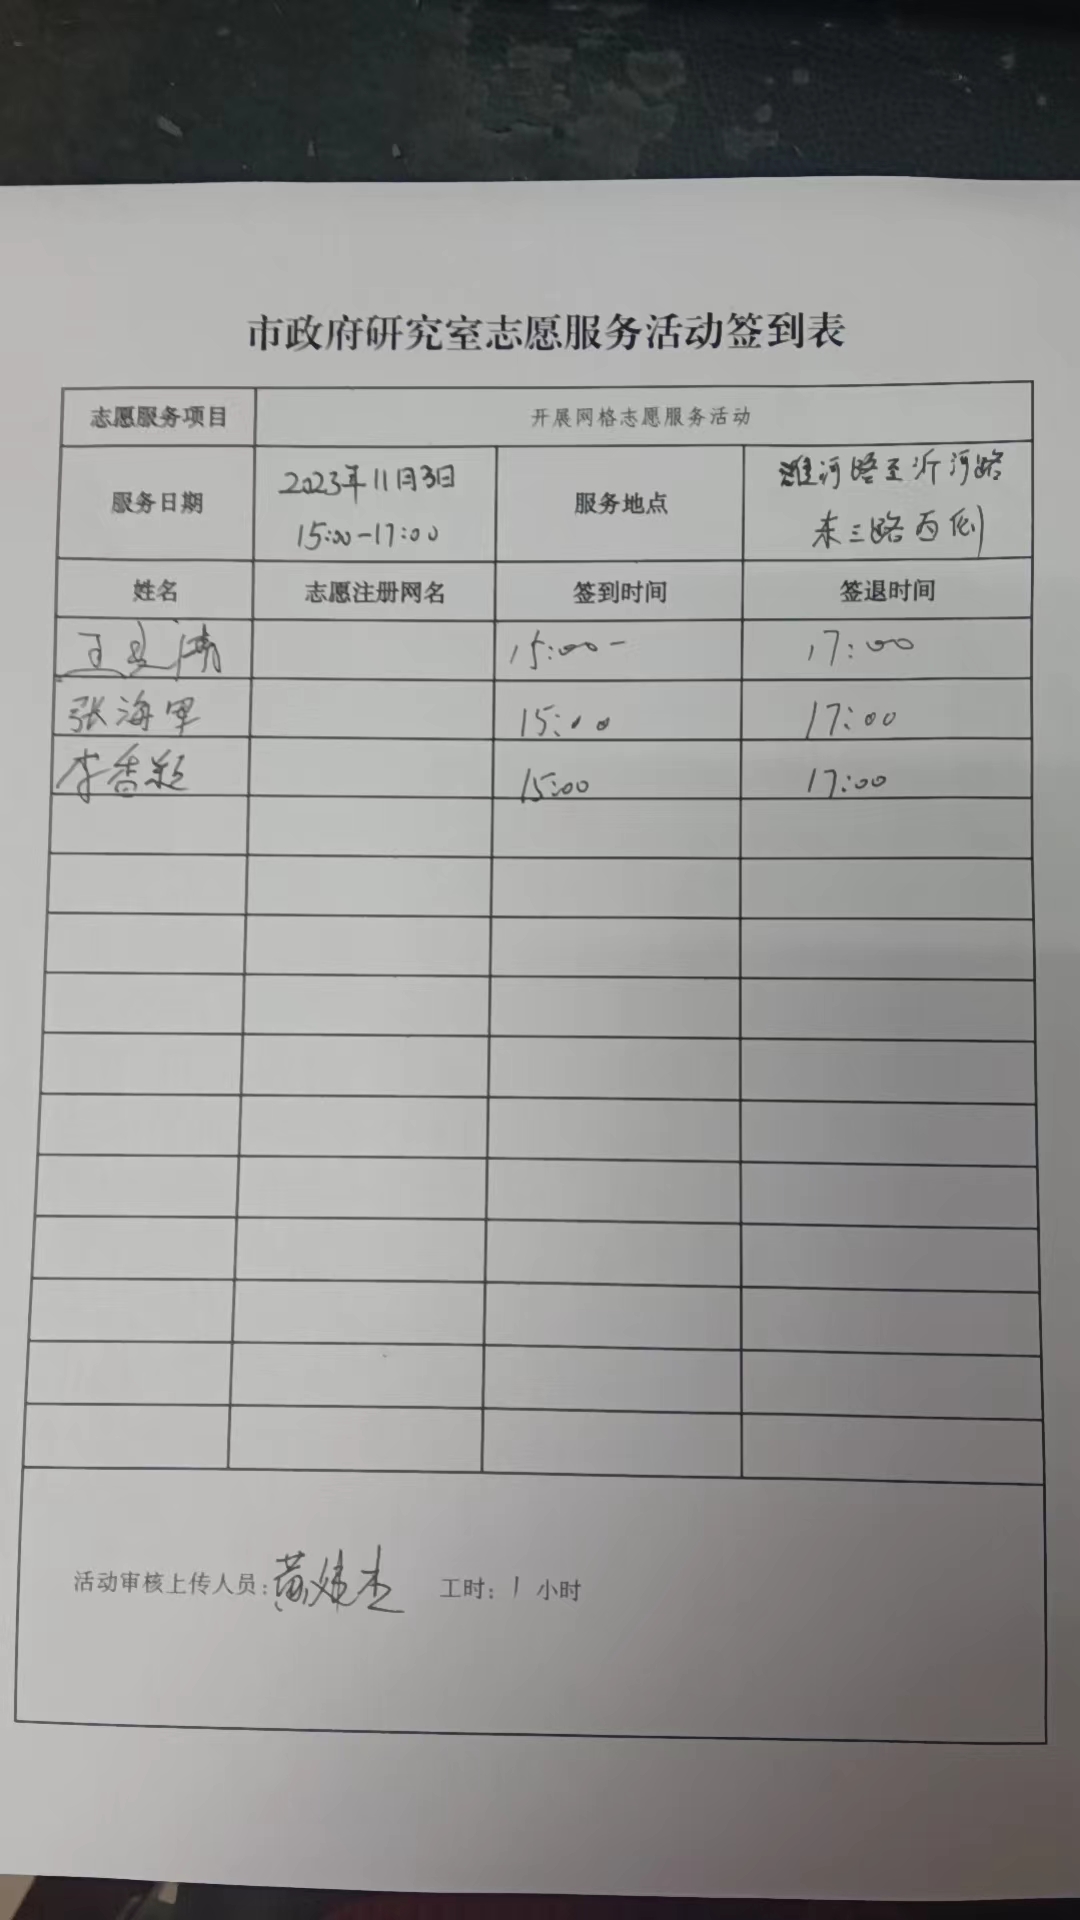 市政府研究室志愿服务活动签到表
志愿服务项目 开展网格志愿服务活动
服务日期 2023年11月3日 15:00-17:00 服务地点 潍河路至沂河路 东三路西侧
姓名 志愿注册网名 签到时间 签退时间
王 涛 15:00- 17:00
张海军 15:00 17:00
李香颖 15:00 17:00
活动审核上传人员: 黄 杰 工时: 1 小时